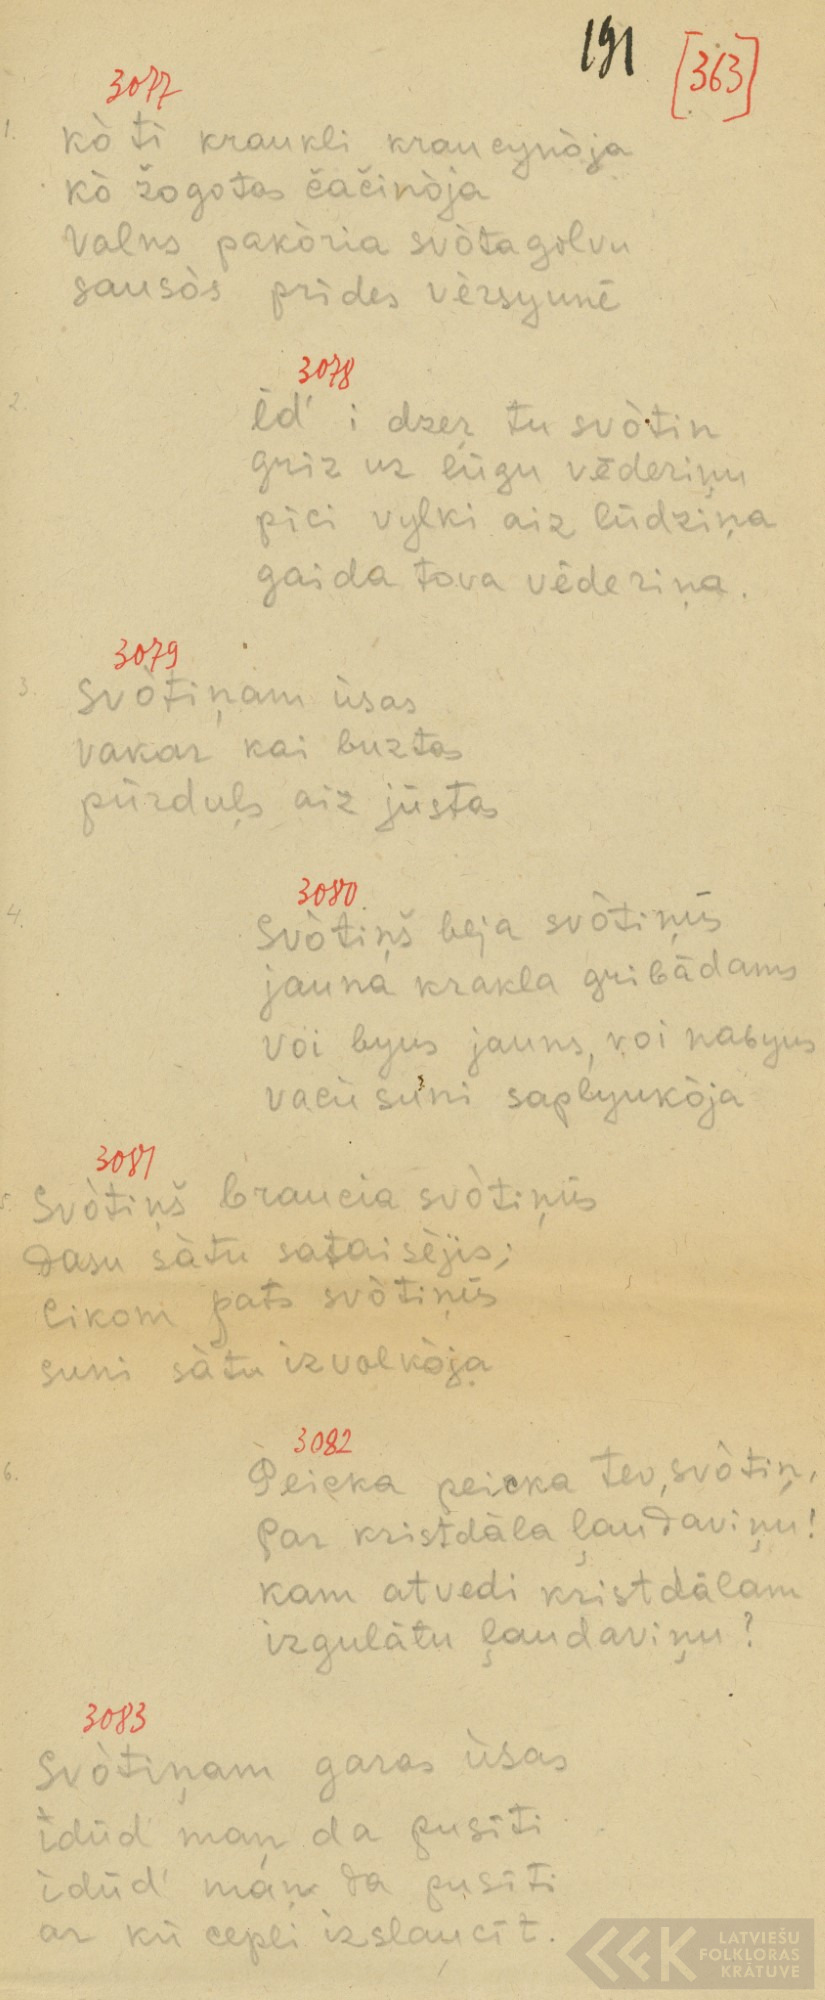 191 [363]
3077
1. kò ti kraukli kraucynòja
kò žogotas čačinòja
Valns pakòria svòta golvu
sausòs prīdes vèrsyunē
3078
2. Ēd' i dzeŗ tu svòtiņ
griz uz lūgu vēderiņu
pīci vylki aiz lūdziņa
gaida tova vēderiņa.
3079
3. Svòtiņam ūsas
vakar kai buztas
pūrduļs aiz jūstas
3080
4. Svòtiņš beja svòtiņūs
jauna krakla gribādams
Voi byus jauns, voi nabyus
vacū suni saplyukòja
3081
5. Svòtiņš braucia svòtiņūs
dasu sàtu sataisèjis;
Cikom pats svòtiņūs
suni sàtu izvolkòja
3082
6. Peicka peicka tev, svòtiņ,
Par kristdāla ļaudaviņu!
kam atvedi kristdālam
izgulātu ļaudaviņu?
3083
Svòtiņam garas ūsas
īdūd' maņ da pusīti
īdūd' maņ da pusīti
ar kū cepli izslaucīt.
LATVIEŠU
FOLKLORAS
KRĀTUVE